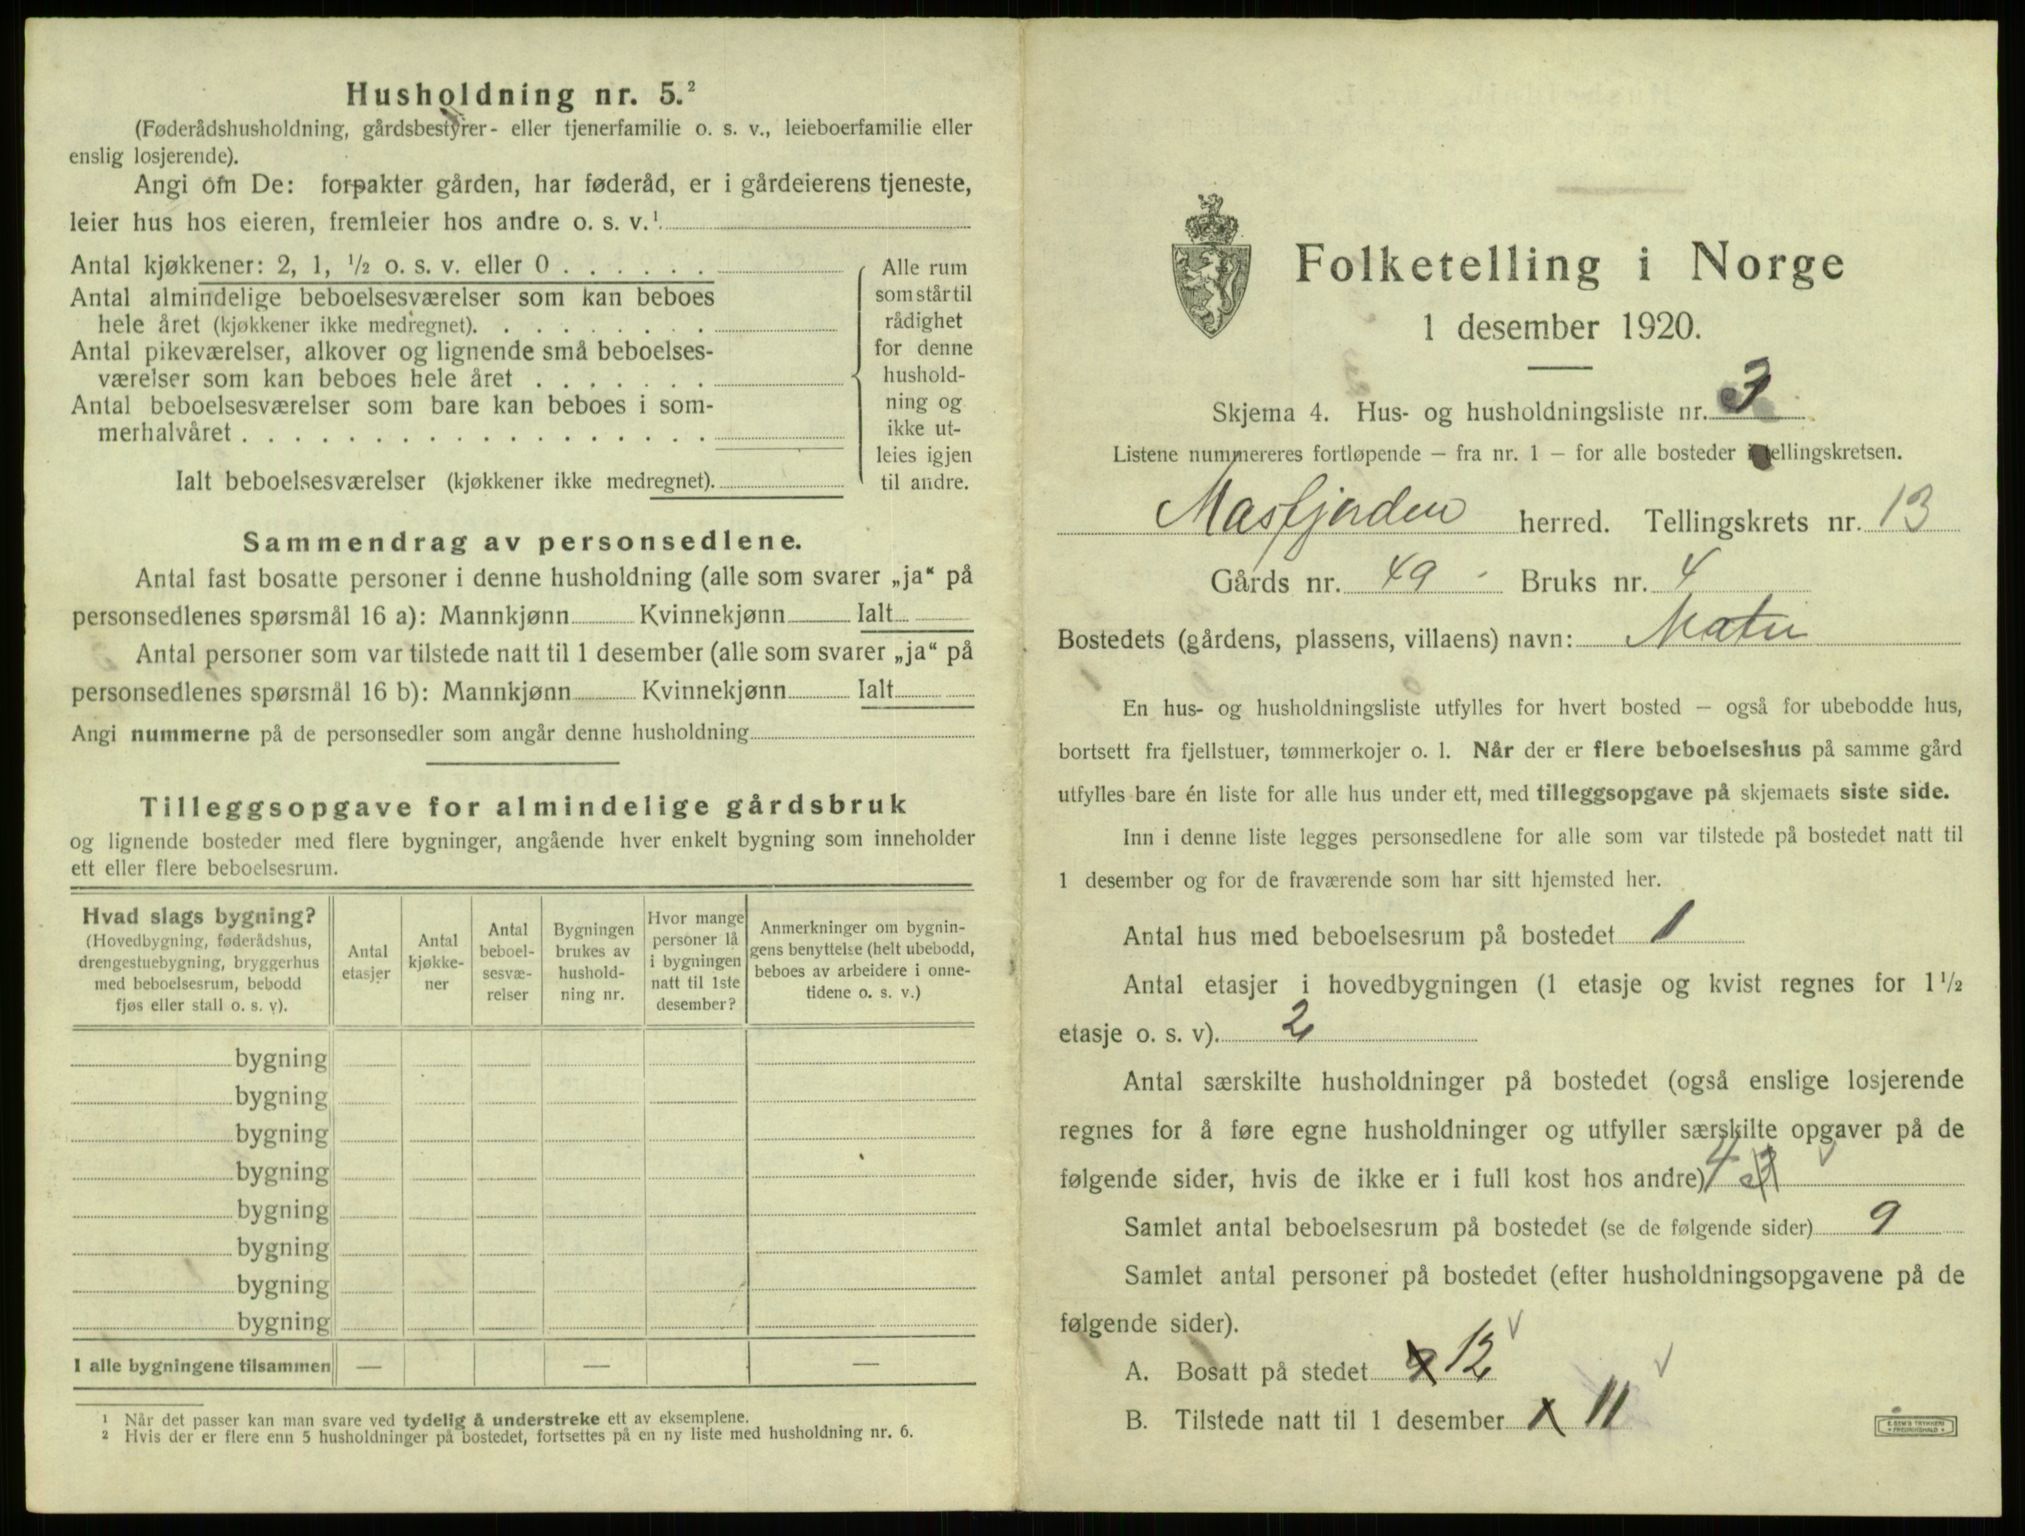 Husholdning nr. 5.²
(Føderådshusholdning, gårdsbestyrer- eller tjenerfamilie o. s. v., leieboerfamilie eller
enslig losjerende).
Angi om De: forpakter gården, har føderåd, er i gårdeierens tjeneste,
leier hus hos eieren, fremleier hos andre o. s. v.¹
Antal kjøkkener: 2, 1, ½ o. s. v. eller 0
Antal almindelige beboelsesværelser som kan beboes
hele året (kjøkkener ikke medregnet).
Antal pikeværelser, alkover og lignende små beboelses-
værelser som kan beboes hele året
Antal beboelsesværelser som bare kan beboes i som-
merhalvåret
Ialt beboelsesværelser (kjøkkener ikke medregnet).
Alle rum
som står til
rådighet
for denne
hushold-
ning og
ikke ut-
leies igjen
til andre.
Sammendrag av personsedlene.
Antal fast bosatte personer i denne husholdning (alle som svarer „ja“ på
personsedlenes spørsmål 16 a): Mannkjønn Kvinnekjønn Ialt
Antal personer som var tilstede natt til 1 desember (alle som svarer „ja“ på
personsedlenes spørsmål 16 b): Mannkjønn Kvinnekjønn Ialt
Angi nummerne på de personsedler som angår denne husholdning
Tilleggsopgave for almindelige gårdsbruk
og lignende bosteder med flere bygninger, angående hver enkelt bygning som inneholder
ett eller flere beboelsesrum.
Hvad slags bygning?
(Hovedbygning, føderådshus,
drengestuebygning, bryggerhus
med beboelsesrum, bebodd
fjøs eller stall o. s. v).
Antal
etasjer
Antal
kjøkke-
ner
Antal
beboel-
sesvæ-
relser
Bygningen
brukes av
hushold-
ning nr.
Hvor mange
personer lå
i bygningen
natt til 1ste
desember?
Anmerkninger om bygnin-
gens benyttelse (helt ubebodd,
beboes av arbeidere i onne-
tidene o. s. v.)
bygning
bygning
bygning
bygning
bygning
bygning
bygning
bygning
I alle bygningene tilsammen — — —
¹ Når det passer kan man svare ved tydelig å understreke ett av eksemplene.
² Hvis der er flere enn 5 husholdninger på bostedet, fortsettes på en ny liste med husholdning nr. 6.
Folketelling i Norge
1 desember 1920.
Skjema 4. Hus- og husholdningsliste nr. 3
Listene nummereres fortløpende — fra nr. 1 — for alle bosteder i tellingskretsen.
Masfjorden herred. Tellingskrets nr. 13
Gårds nr. 49 - Bruks nr. 4
Bostedets (gårdens, plassens, villaens) navn: Matre
En hus- og husholdningsliste utfylles for hvert bosted — også for ubebodde hus,
bortsett fra fjellstuer, tømmerkojer o. l. Når der er flere beboelseshus på samme gård
utfylles bare én liste for alle hus under ett, med tilleggsopgave på skjemaets siste side.
Inn i denne liste legges personsedlene for alle som var tilstede på bostedet natt til
1 desember og for de fraværende som har sitt hjemsted her.
Antal hus med beboelsesrum på bostedet 1
Antal etasjer i hovedbygningen (1 etasje og kvist regnes for 1½
etasje o. s. v). 2
Antal særskilte husholdninger på bostedet (også enslige losjerende
regnes for å føre egne husholdninger og utfyller særskilte opgaver på de
følgende sider, hvis de ikke er i full kost hos andre) 4
Samlet antal beboelsesrum på bostedet (se de følgende sider) 9
Samlet antal personer på bostedet (efter husholdningsopgavene på de
følgende sider).
A. Bosatt på stedet 9 12
B. Tilstede natt til 1 desember 11
E. SEM'S TRYKKERI
FREDRIKSHALD